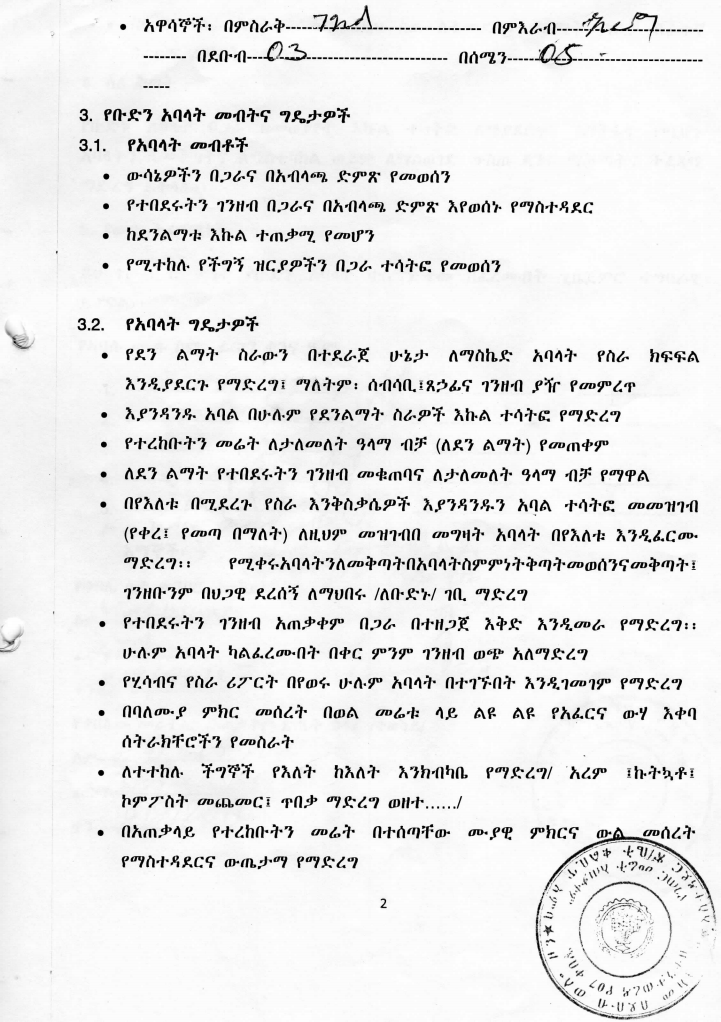 • አዋሳኞች፡ በምስራቅ---------- በምእራብ----------
-------- በደቡብ--03---------- በሰሜን------05----------
-----
3. የቡድን አባላት መብትና ግዴታዎች
3.1. የአባላት መብቶች
• ውሳኔዎችን በጋራና በአብላጫ ድምጽ የመወሰን
• የተበደሩትን ገንዘብ በጋራና በአብላጫ ድምጽ እየወሰኑ የማስተዳደር
• ከደንልማቱ እኩል ተጠቃሚ የመሆን
• የሚተከሉ የችግኝ ዝርያዎችን በጋራ ተሳትፎ የመወሰን
3.2. የአባላት ግዴታዎች
• የደን ልማት ስራውን በተደራጀ ሁኔታ ለማስኬድ አባላት የስራ ክፍፍል
እንዲያደርጉ የማድረግ፤ ማለትም፡ ሰብሳቢ፤ጸኃፊና ገንዘብ ያዥ የመምረጥ
• እያንዳንዱ አባል በሁሉም የደንልማት ስራዎች እኩል ተሳትፎ የማድረግ
• የተረከቡትን መሬት ለታለመለት ዓላማ ብቻ (ለደን ልማት) የመጠቀም
• ለደን ልማት የተበደሩትን ገንዘብ መቁጠባና ለታለመለት ዓላማ ብቻ የማዋል
• በየእለቱ በሚደረጉ የስራ እንቅስቃሴዎች እያንዳንዱን አባል ተሳትፎ መመዝገብ
(የቀረ፤ የመጣ በማለት) ለዚህም መዝገብበ መግዛት አባላት በየእለቱ እንዲፈርሙ
ማድረግ፡፡ የሚቀሩአባላትንለመቅጣትበአባላትስምምነትቅጣትመወሰንናመቅጣት፤
ገንዘቡንም በህጋዊ ደረሰኝ ለማህበሩ /ለቡድኑ/ ገቢ ማድረግ
• የተበደሩትን ገንዘብ አጠቃቀም በጋራ በተዘጋጀ እቅድ እንዲመራ የማድረግ፡፡
ሁሉም አባላት ካልፈረሙበት በቀር ምንም ገንዘብ ወጭ አለማድረግ
• የሂሳብና የስራ ሪፖርት በየወሩ ሁሉም አባላት በተገኙበት እንዲገመገም የማድረግ
• በባለሙያ ምክር መሰረት በወል መሬቱ ላይ ልዩ ልዩ የአፈርና ውሃ እቀባ
ሰትራክቸሮችን የመስራት
• ለተተከሉ ችግኞች የእለት ከእለት እንክብካቤ የማድረግ/ አረም ፤ኩትኳቶ፤
ኮምፖስት መጨመር፤ ጥበቃ ማድረግ ወዘተ....../
• በአጠቃላይ የተረከቡትን መሬት በተሰጣቸው ሙያዊ ምክርና ውል መሰረት
የማስተዳደርና ውጤታማ የማድረግ
2